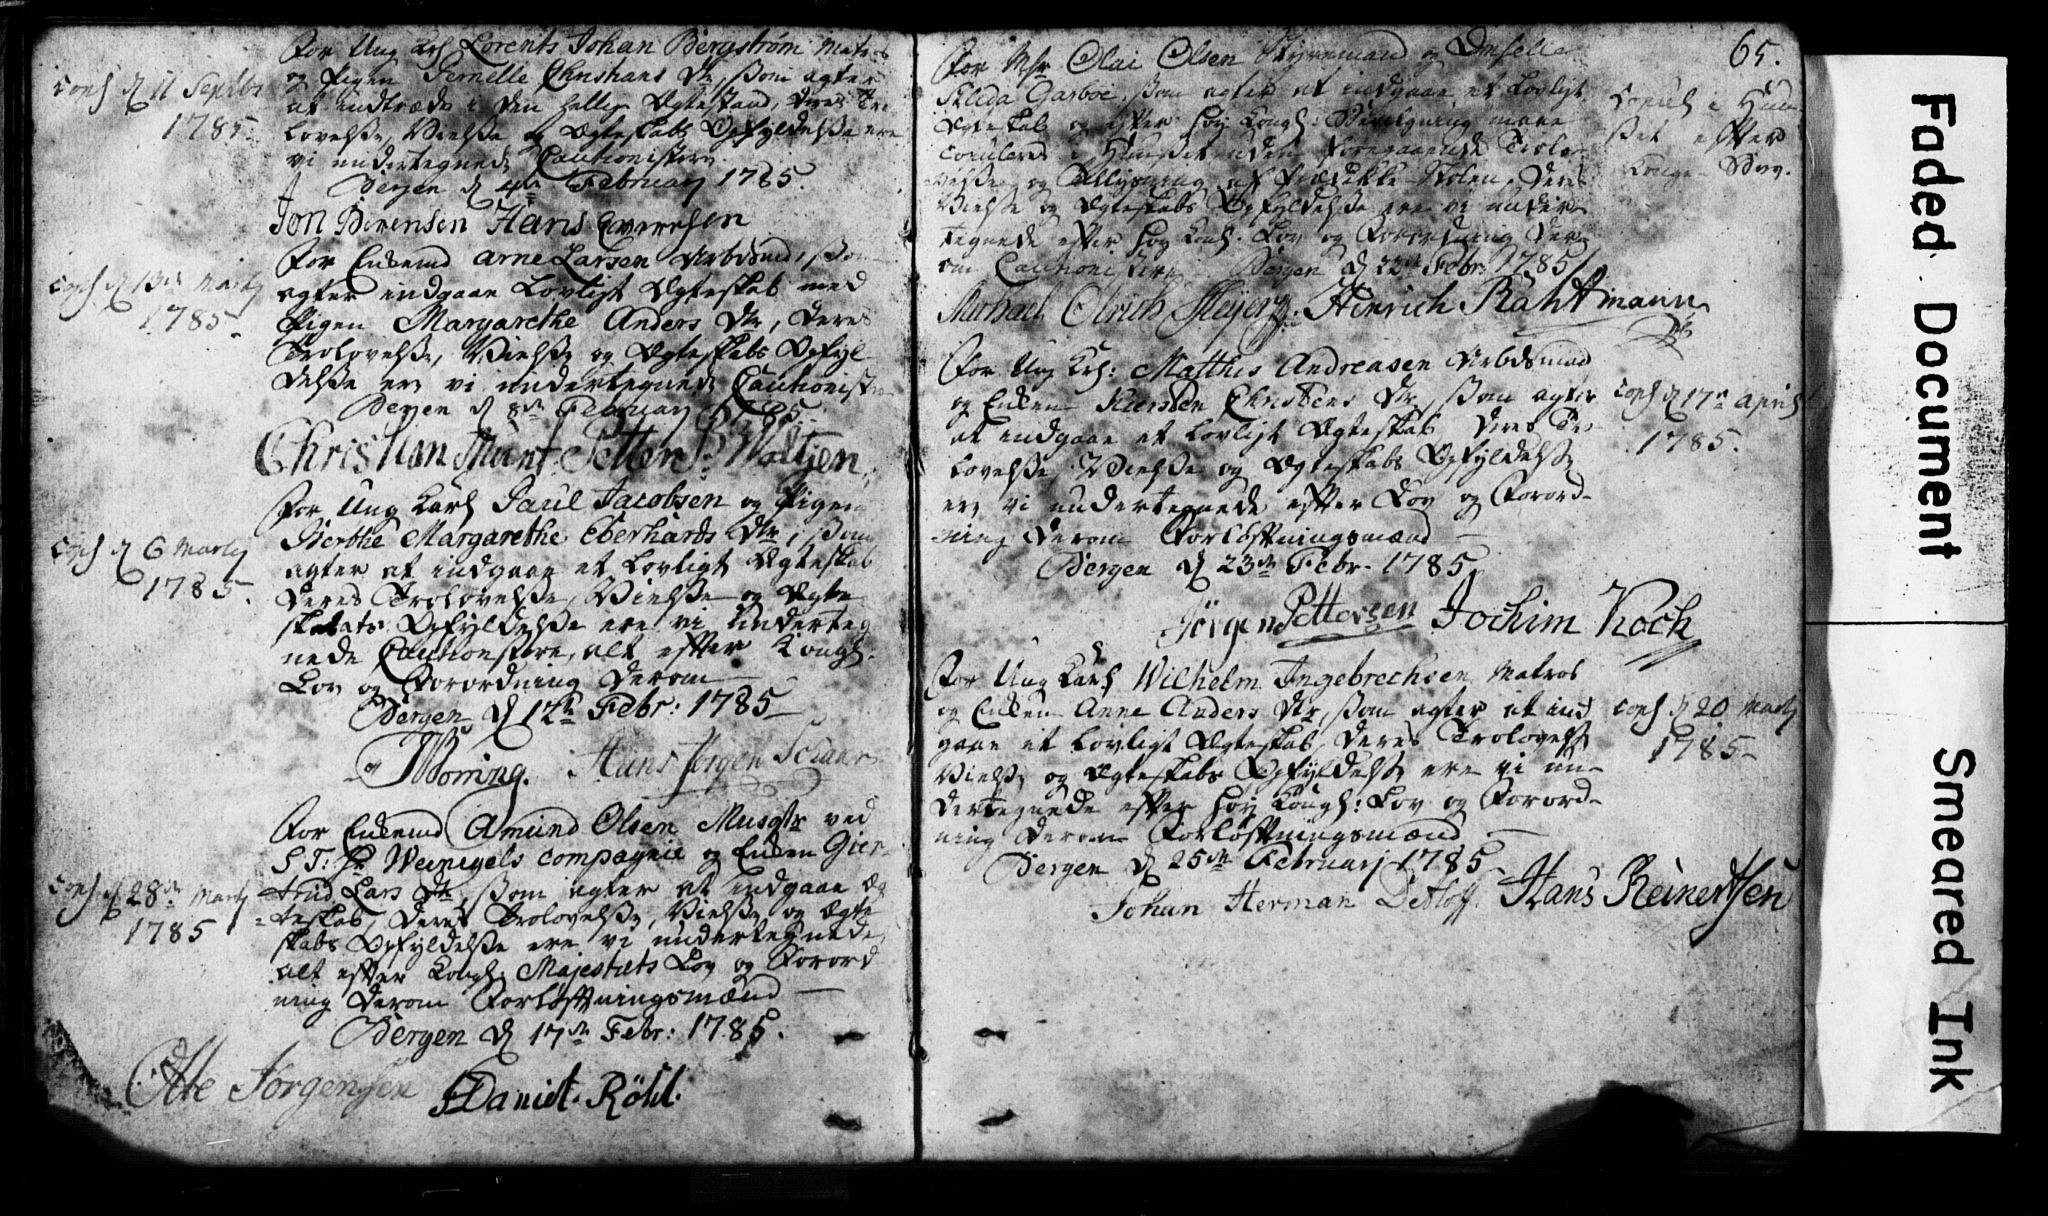 For Ung Karl Lorents Johan Bergstrøm Matros
og Pigen Pernelle Christians Dtr, som agter
at indtræde i den hellig Ægtestand, deres Tro
lovelse, Vielse og Ægteskabs Opfyldelse ere
vi undertegnede Cautionister
Bergen d 4de Februarij 1785.
Jon Berensen Hans Evertsen
Cop: d 11 Septbr
1785
For Enkemd Arne Larsen Arbdsmd, som
agter indgaae Lovligt Ægteskab med
Pigen Margarethe Anders Dtr, deres
Trolovelse, Vielse og Ægteskabs Opfyl
delse ere vi undertegnede Cautionister
Bergen d 8de Februarij 1785.
Christian Munt Petter Woltjen
Cop: d 13de Martj
1785.
For Ung Karl Paul Jacobsen og Pigen
Berthe Margarethe Eberhards Dtr, som
agter at indgaae et Lovligt Ægteskab
deres Trolovelse, Vielse og Ægte
skabs Opfyldelse ere vi underteg
nede Cautionistere, alt efter Kongl.
Lov og Forordning derom
Bergen d 12te Febr: 1785
Worning. Hans Jørgen Schaar
Cop: d 6 Martj
1785.
For Enkemd Amund Olsen Musqtr ved
S T: Hr Weinigels Compagnie og Enken Gier
trud Lars Dtr, som agter at indgaae Æg
teskab, deres Trolovelse, Vielse og Ægte
skabs Opfyldelse ere vi undertegnede
alt efter Kongl. Majestæts Lov og Forord
ning derom Forløftningsmænd
Bergen d 17de Febr: 1785.
Otte Jørgensen Daniel Röhl.
Cop: d 28de Martj
1785
65.
For Mhr Olai Olsen Styremand og Dmselle
Garboe, som agter at indgaae et Lovligt
Ægteskab og efter høy Kongl: Bevilgning maae
Copuleres i Huuset uden foregaaende Trolo
velse og Tillysning af Prædike Stolen, deres
Vielse og Ægteskabs Opfyldelse ere vi under
tegnede efter høy Kongl. Lov og Forordning der
om Cautionistere Bergen d 22de Febr: 1785
Michael Olrich Meyer Hinrich Rahtmann
Copul: i Huu
set efter
Konge Bev.
For Ung Krl: Matthis Andreasen Arbdsmand
og Enken Kiersten Christens Dtr, som agter
at indgaae et Lovligt Ægteskab deres Tro
lovelse, Vielse og Ægteskabs Opfyldelse
ere vi undertegnede efter Lov og Forord-
ning derom Forløftningsmænd
Bergen d 23de Febr. 1785
Jørgen Pettersen Jochim Koch
Cop: d 17de April
1785.
For Ung Karl Wilhelm Ingebrechtsen Matros
og Enken Anne Anders Dtr, som agter at ind
gaae et Lovligt Ægteskab, deres Trolovelse
Vielse og Ægteskabs Opfyldelse ere vi un-
dertegnede efter høy Kongl: Lov og Forord-
ning derom Forløftningsmænd
Bergen d 25de Februarij 1785
Johan Herman Detloff. Hans Reinertsen
Cop: d 20 Martj
1785
Faded Document
Smeared Ink